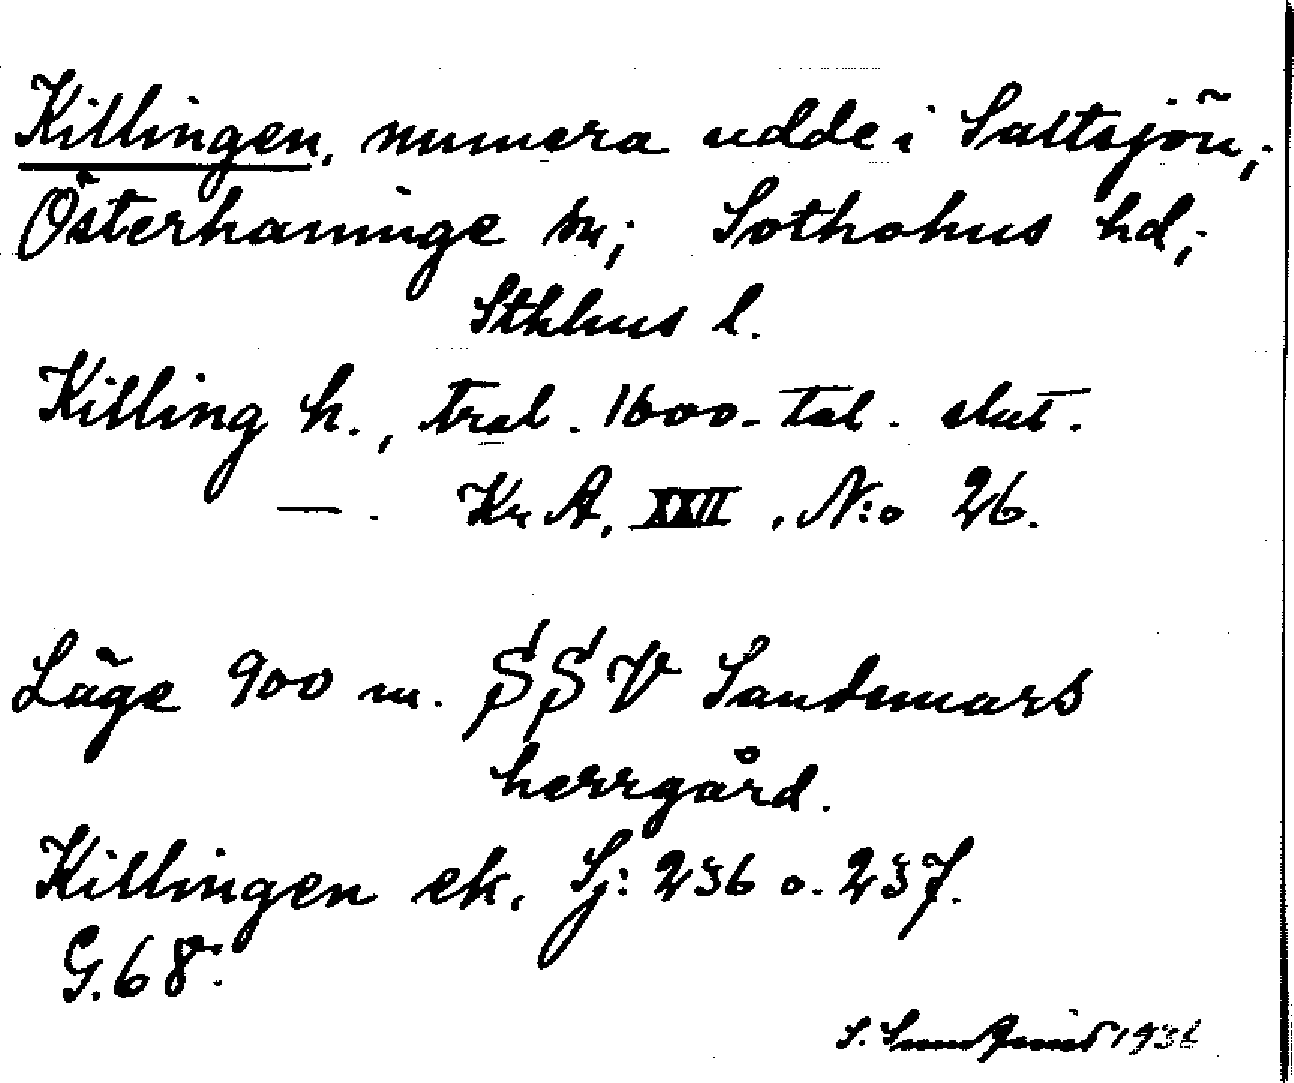 Killingen, numera udde i Saltsjön,
Österhaninge sn; Sotholms hd,
Sthlms l.
Killing h., tral. 1600-tal. slut.
—. Kr A, XXII, N:o 26.
Läge 900 m. SSV Sandemars
herrgård.
Killingen ek. Sj: 236 o. 237.
G. 68.
S. Sundqvist 1936